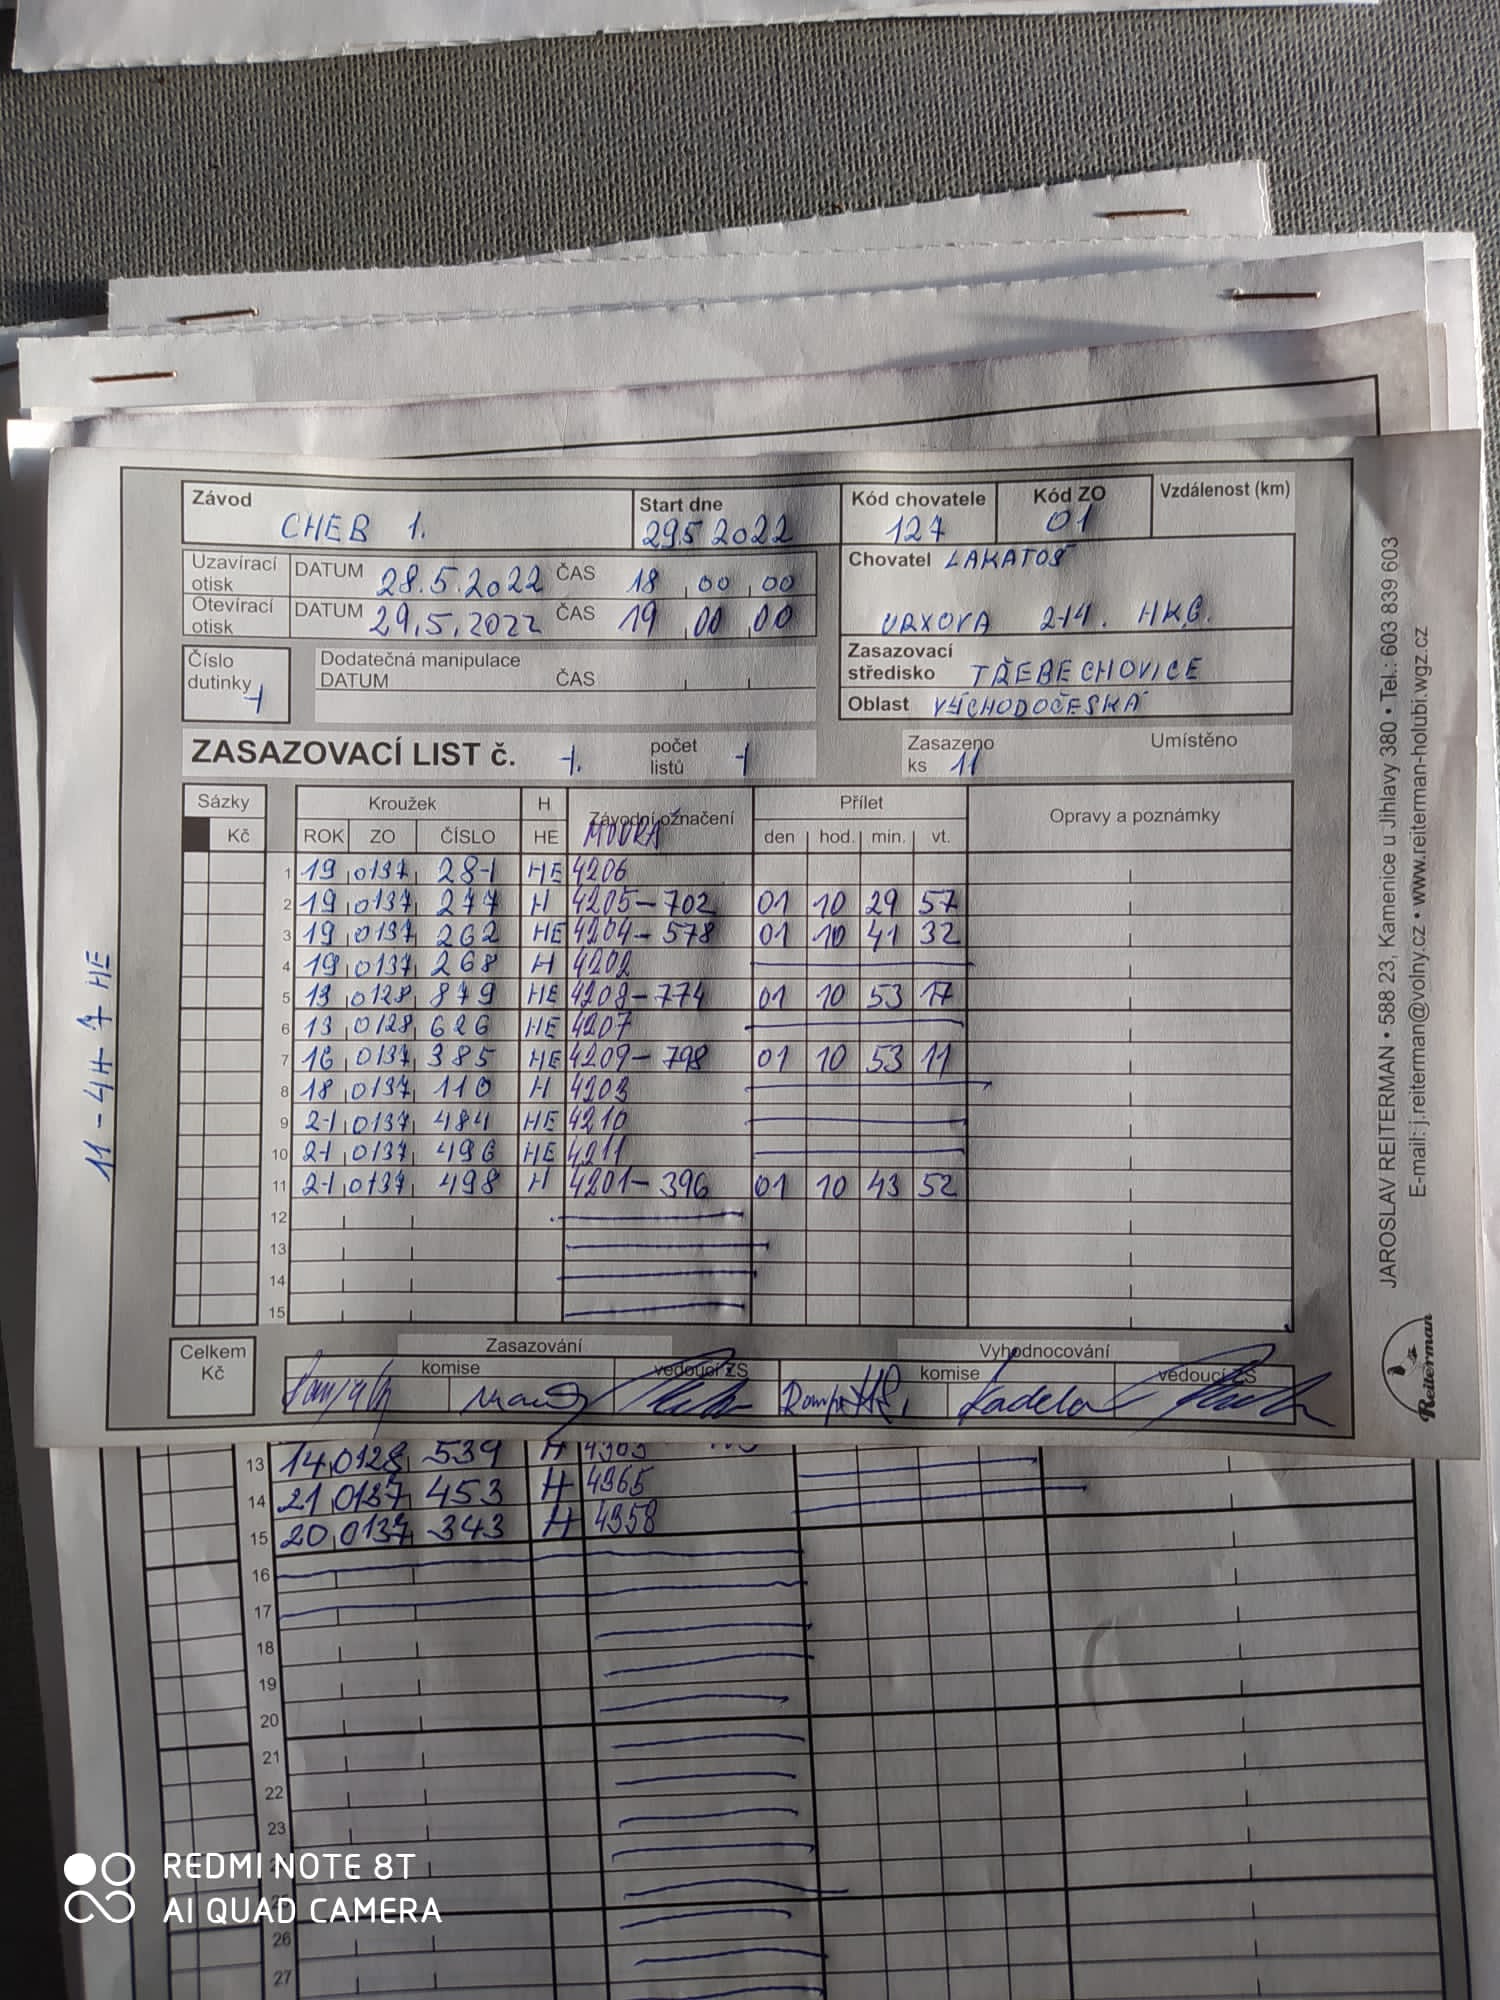 Závod CHEB 1. Start dne 29.5 2022 Kód chovatele 127 Kód ZO 01 Vzdálenost (km)
Uzavírací otisk DATUM 28.5.2022 ČAS 18 00 00
Otevírací otisk DATUM 29.5.2022 ČAS 19 00 00
Chovatel LAKATOŠ
214. HK6.
Číslo dutinky 1
Dodatečná manipulace
DATUM ČAS
Zasazovací středisko TŘEBECHOVICE
Oblast VÝCHODOČESKÁ
ZASAZOVACÍ LIST č. 1. počet listů 1 Zasazeno ks 11 Umístěno
Sázky Kroužek H Závodní označení Přílet Opravy a poznámky
Kč ROK ZO ČÍSLO HE MODRÁ den hod. min. vt.
1 19 0137 281 HE 4206
2 19 0137 277 H 4205-702 01 10 29 57
3 19 0137 262 HE 4204-578 01 10 41 32
4 19 0137 268 H 4202
5 13 0128 879 HE 4208-774 01 10 53 17
6 13 0128 626 HE 4207
7 16 0137 385 HE 4209-798 01 10 53 11
8 18 0137 110 H 4203
9 21 0137 484 HE 4210
10 21 0137 496 HE 4211
11 21 0137 498 H 4201-396 01 10 43 52
12
13
14
15
11 - 4H 7 HE
Celkem Kč
Zasazování Vyhodnocování
komise vedoucí ZS komise vedoucí ZS
Kadela
JAROSLAV REITERMAN • 588 23, Kamenice u Jihlavy 380 • Tel.: 603 839 603
E-mail: j.reiterman@volny.cz • www.reiterman-holubi.wgz.cz
Reiterman
13 14 0128 539 H
14 21 0137 453 H 4965
15 20 0137 343 H 4958
16
17
18
19
20
21
22
23
26
27
REDMI NOTE 8T
AI QUAD CAMERA